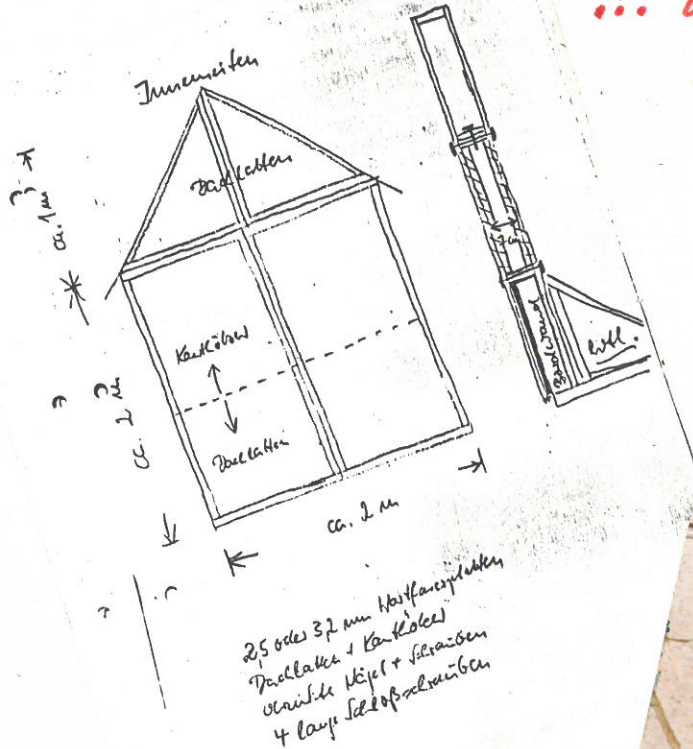 ...
Innenseiten
Dachlatten
ca. 1 m
Kanthölzer
Dachlatten
ca. 2 m
ca. 2 m
Bordwand
evtl.
2,5 oder 3,2 mm Hartfaserplatten
Dachlatten + Kanthölzer
verzinkte Nägel + Schrauben
4 lange Schloßschrauben